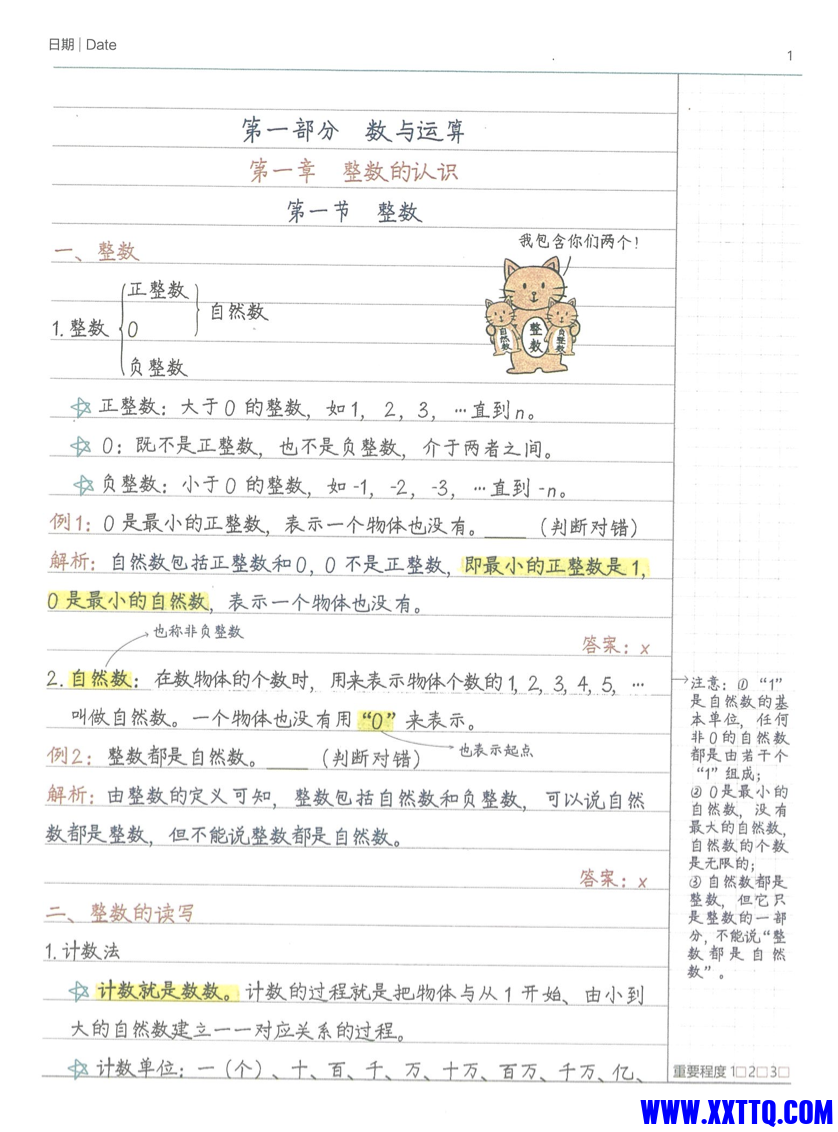 日期 | Date
1
第一部分 数与运算
第一章 整数的认识
第一节 整数
一、整数
我包含你们两个!
正整数
1. 整数
0
自然数
负整数
自然数
整数
负整数
☆ 正整数：大于0的整数，如1，2，3，…直到n。
☆ 0：既不是正整数，也不是负整数，介于两者之间。
☆ 负整数：小于0的整数，如-1，-2，-3，…直到-n。
例1：0是最小的正整数，表示一个物体也没有。____（判断对错）
解析：自然数包括正整数和0，0不是正整数，即最小的正整数是1，
0是最小的自然数，表示一个物体也没有。
也称非负整数
答案：x
2. 自然数：在数物体的个数时，用来表示物体个数的1, 2, 3, 4, 5, …
叫做自然数。一个物体也没有用“0”来表示。
也表示起点
例2：整数都是自然数。____（判断对错）
解析：由整数的定义可知，整数包括自然数和负整数，可以说自然
数都是整数，但不能说整数都是自然数。
答案：x
二、整数的读写
1. 计数法
☆ 计数就是数数。计数的过程就是把物体与从1开始、由小到
大的自然数建立一一对应关系的过程。
☆ 计数单位：一（个）、十、百、千、万、十万、百万、千万、亿、
注意：①“1”
是自然数的基
本单位，任何
非0的自然数
都是由若干个
“1”组成；
②0是最小的
自然数，没有
最大的自然数，
自然数的个数
是无限的；
③自然数都是
整数，但它只
是整数的一部
分，不能说“整
数都是自然
数”。
重要程度 1□2□3□
WWW.XXTTQ.COM